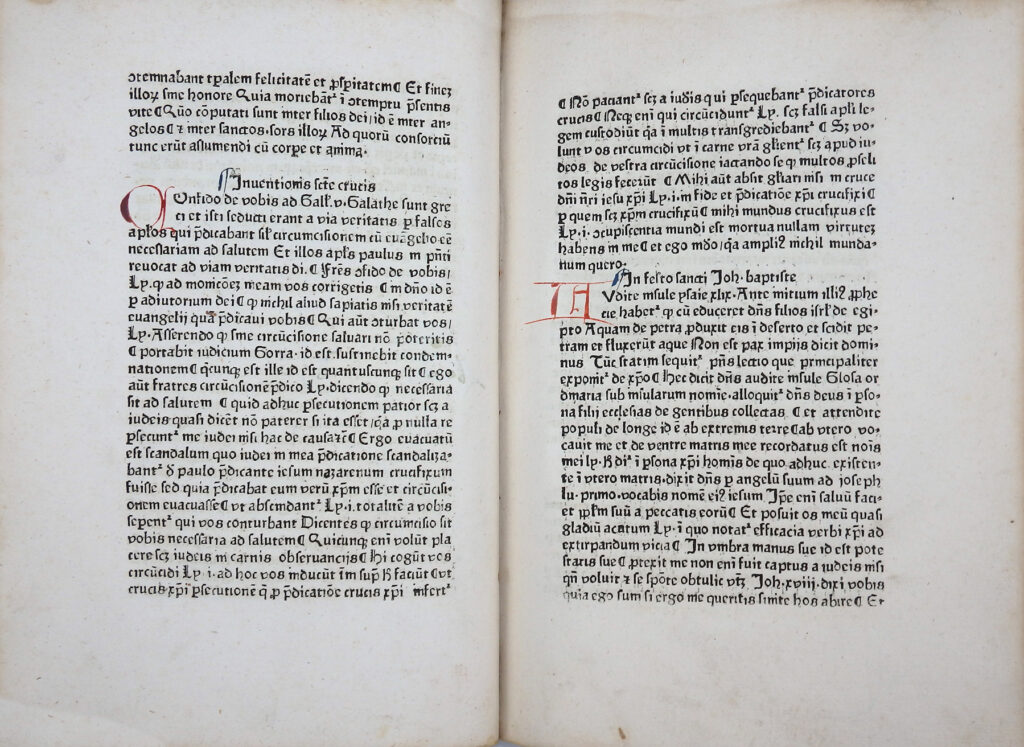 ↄtemnabant tꝑalem felicitatē et ꝓſꝑitatem ¶ Et finez
illoꝝ ſine honore Quia moriebāt᷑ ī ↄtemptu p̄ſentis
vite ¶ Quō cōputati ſunt inter filios dei / id ē inter an⸗
gelos ⁊ inter ſanctos. ſors illoꝝ Ad quorū conſortiū
tunc erūt aſſumendi cū corꝑe et anima.
Inuentionis ſcte crucis
Onfido de vobis ad Gal. v. Galathe ſunt gre
ci et iſti ſeducti erant a via veritatis ꝑ falſos
apłos qui p̄dicabant ſił circumciſionem cū euāgelio eē
neceſſariam ad ſalutem Et illos apłs paulus in p̄nti
reuocat ad viam veritatis di. ¶ Frēs ↄfido de vobis /
Ly. ꝙ ad monicōez meam vos corrigetis ¶ in dn̄o id ē
ꝑ adiutorium dei ¶ ꝙ nichil aliud ſapiatis niſi veritatē
euangelij quā p̄dicaui vobis ¶ Qui aūt ↄturbat vos /
Ly. Aſſerendo ꝙ ſine circūciſione ſaluari nō poteritis
¶ portabit iudicium Gorra. id est. ſuſtinebit condem⸗
nationem ¶ q̄cunqꝫ eſt ille id eſt quantuſcunqꝫ ſit ¶ ego
aūt fratres circūciſionē p̄dico Ly. dicendo ꝙ neceſſaria
ſit ad ſalutem ¶ quid adhuc ꝑſecutionem patior ſcꝫ a
iudeis quaſi dicēt nō paterer ſi ita eſſet / q̄a ꝓ nulla re
ꝑſecunt᷑ me iudei niſi hac de cauſa ¶ Ergo euacuatū
eſt ſcandalum quo iudei in mea p̄dicatione ſcandaliza⸗
bant᷑ paulo p̄dicante ieſum nazarenum crucifixum
fuiſſe ſed quia p̄dicabat eum verū xp̄m eſſe et circūciſi⸗
onem euacuaſſe ¶ vt abſcindant᷑ Ly. i. totalitē a vobis
ſeꝑent᷑ qui vos conturbant Dicentes ꝙ circumciſio ſit
vobis neceſſaria ad ſalutem ¶ Quicunqꝫ eni volūt pla
cere ſcꝫ iudeis in carnis obſeruanciis ¶ hi cogūt vos
circūcidi Ly. i. ad hoc vos inducūt faciūt ¶ vt
crucis xp̄i ꝑſecutionē q̄ ꝓ p̄dicatiōe crucis xp̄i infert᷑
¶ Nō paciant᷑ ſcꝫ a iudis qui ꝑſequebant᷑ p̄dicatores
crucis ¶ Neqꝫ enī qui circūcidunt᷑ Ly. ſcꝫ falſi apłi le⸗
gem cuſtodiūt q̄a ī multis tranſgrediebant᷑ ¶ Sꝫ vo⸗
lunt vos circumcidi vt ī carne vrā głient᷑ ſcꝫ apud iu⸗
deos de veſtra circūciſione iactando ſe ꝙ multos ꝓſeli
tos legis fecerūt ¶ Mihi aūt abſit głiari niſi in cruce
dn̄i n̄ri ieſu xp̄i Ly. i. in fide et p̄dicatiōe xp̄i crucifixi ¶
ꝑ quem ſcꝫ xp̄m crucifixū ¶ mihi mundus crucifixus eſt
Ly. i. ↄcupiſcentia mundi eſt mortua nullam virtutez
habens in me ¶ et ego mdo / q̄a ampliꝰ nichil munda⸗
num quero.
In feſto ſancti Joh. baptiſte
Vdite inſule yſaie xlix. Ante initium illiꝰ ꝓphe
cie habet᷑ ꝙ cū educeret dn̄s filios iſrł de egi⸗
pto Aquam de petra ꝓduxit eis ī deſerto et ſcidit pe⸗
tram et fluxerūt aque Non eſt pax impijs dicit domi⸗
nus Tūc ſtatim ſequit᷑ p̄ns lectio que principaliter
exponit᷑ de xp̄o ¶ Hec dicit dn̄s audite inſule Gloſa or
dinaria ſub inſularum nomie. alloquit᷑ dn̄s deus ī ꝑſo⸗
na filij eccleſias de gentibus collectas ¶ et attendite
populi de longe id ē ab extremis terre ¶ ab vtero vo⸗
cauit me et de ventre matris mee recordatus eſt nois
mei ly. ī ꝑſona xp̄i homīs de quo adhuc exiſten⸗
te ī vtero matris. dixit dn̄s ꝑ angelū ſuum ad ioſeph
lu. primo. vocabis nomē eiꝰ ieſum Jpe enī ſaluū faci⸗
et płm ſuū a peccatis eorū ¶ Et poſuit os meū quaſi
gladiū acutum Ly. ī quo notat᷑ efficacia verbi xp̄i ad
extirpandum vicia ¶ In vmbra manus ſue id eſt pote
ſtatis ſue ¶ ꝓtexit me non enī fuit captus a iudeis niſi
qn̄ voluit ⁊ ſe ſpōte obtulit vtꝫ Joh. xviij. dixi vobis
quia ego ſum ſi ergo me queritis ſinite hos abire ¶ Et